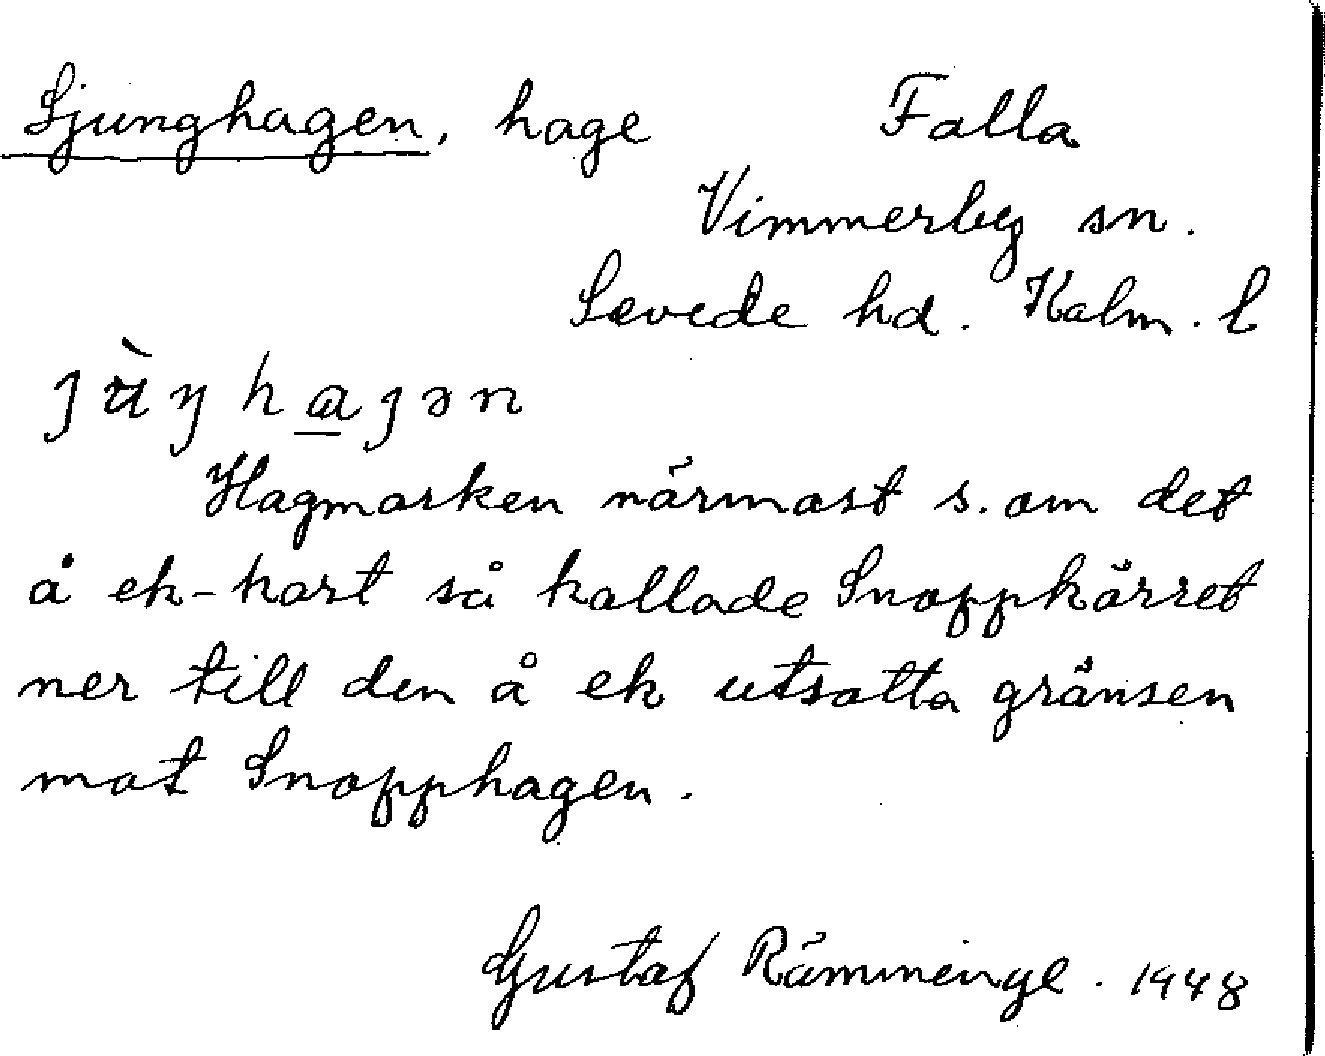 Ljunghagen, hage Falla
Vimmerby sn.
Sevede hd. Kalm. l
jùŋhagən
Hagmarken närmast s. om det
å ek-kart så kallade Snoppkärret
ner till den å ek utsatta gränsen
mot Snopphagen.
Gustaf Rämminge. 1948